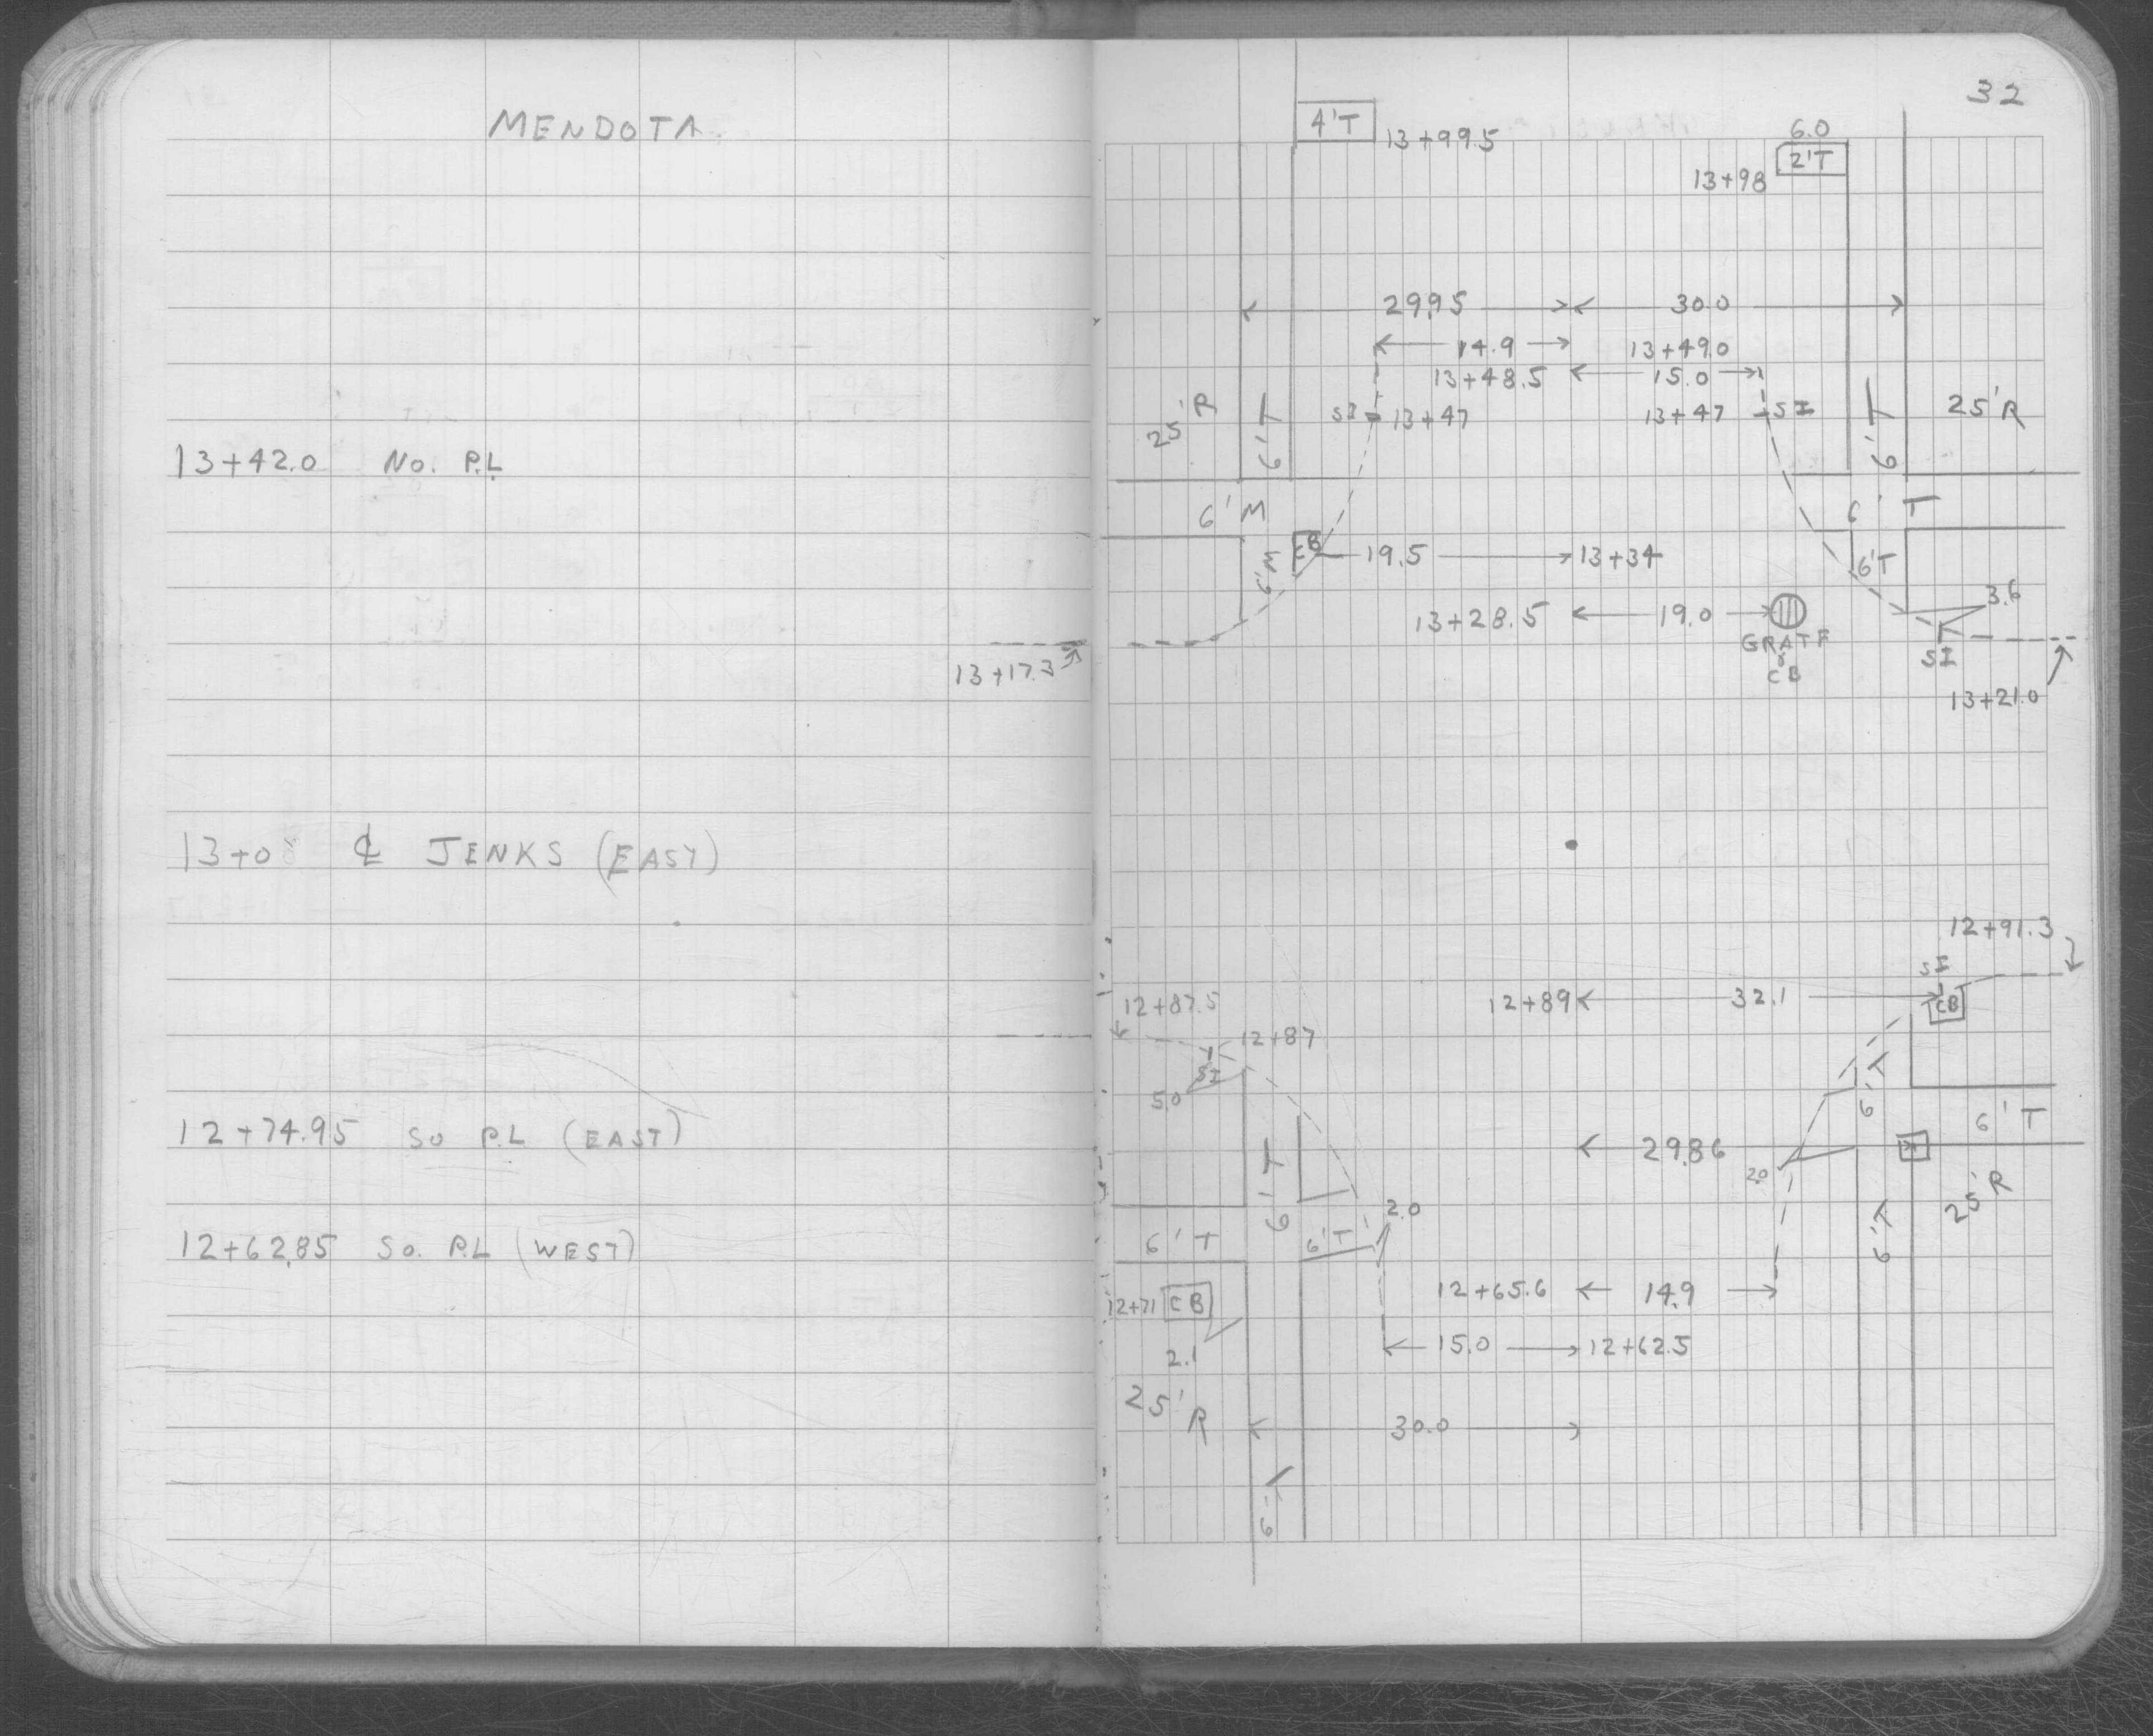 MENDOTA.
13+42.0 No. P.L
13+08 ℄ JENKS (EAST)
12+74.95 So P.L (EAST)
12+62.85 So. P.L (WEST)
32
4'T 13+99.5
6.0
2'T
13+98
29.95 30.0
14.9 13+49.0
13+48.5 15.0
25'R 6'T SI 13+47 13+47 SI 6'T 25'R
6'M 6'T
6'M CB 19.5 13+34 6'T
13+28.5 19.0 3.6
GRATE
CB
SI
13+17.3
13+21.0
12+91.3
SI
12+87.5 12+89 32.1 CB
12+87
SI
5.0 6'T
6'T
29.86
2.0
6'T 25'R
6'T 2.0
6'T 6'T 6'T
12+65.6 14.9
12+71 CB
15.0 12+62.5
2.1
25'R 30.0
6'